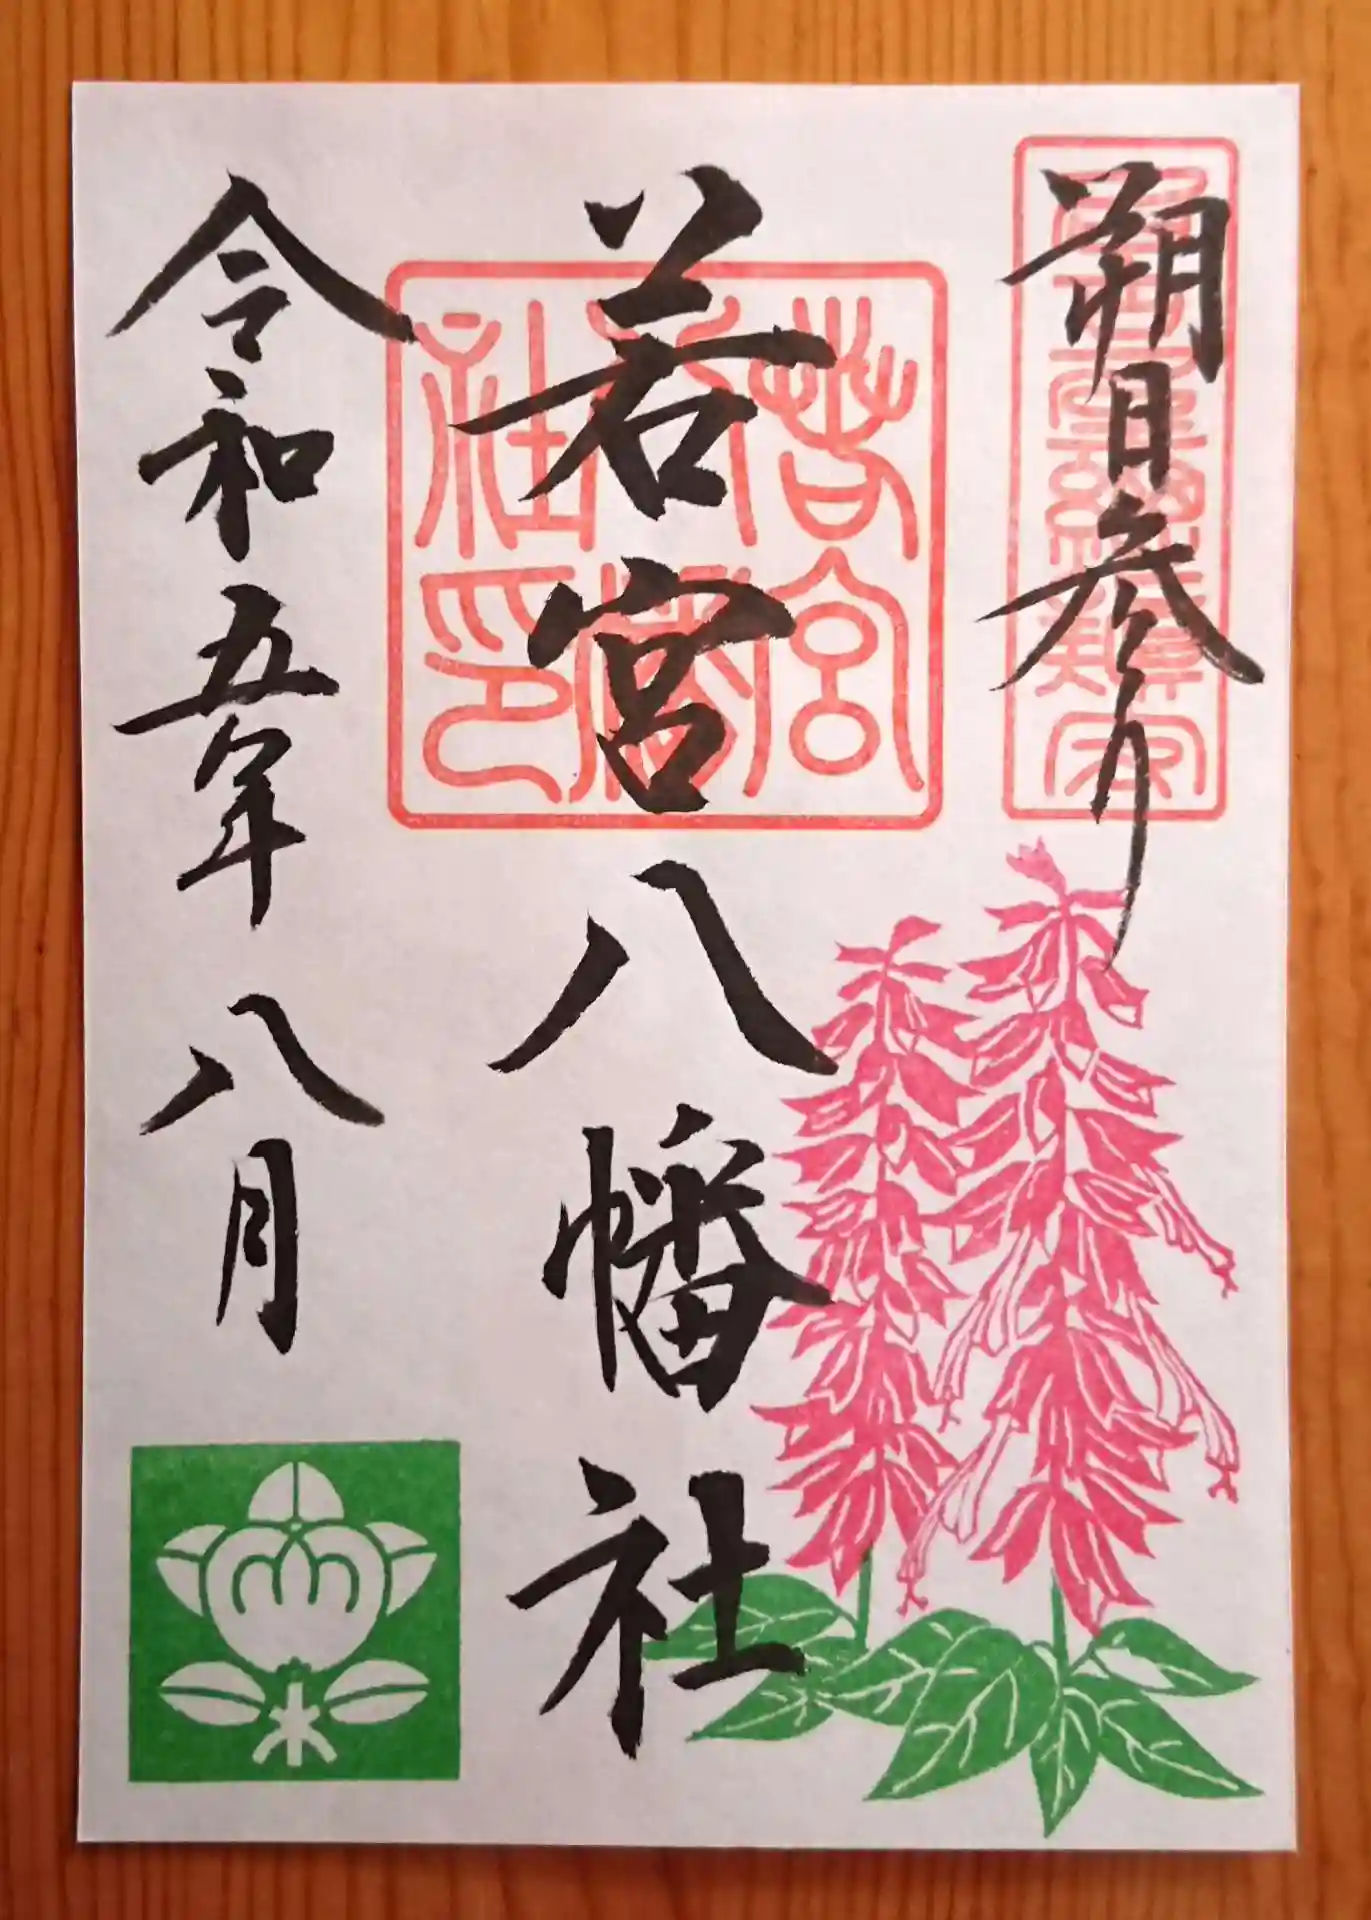 朔日参り
若宮八幡社
若宮八幡社印
令和五年八月